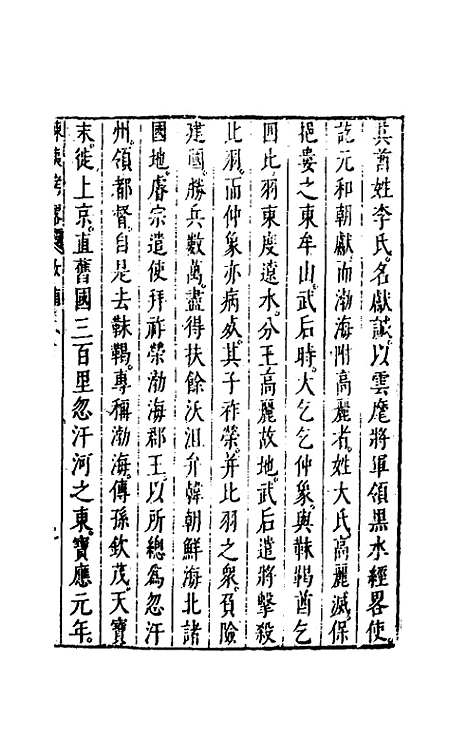 其舊姓李氏名獻誠以雲麾將軍領黑水經畧使
訖元和朝獻而渤海附高麗者姓大氏高麗滅保
挹婁之東牟山武后時大乞乞仲象與靺鞨酋乞
四比羽東度遼水分王高麗故地武后遣將擊殺
比羽而仲象亦病死其子祚榮并比羽之衆負險
建國勝兵數萬盡得扶餘沃沮弁韓朝鮮海北諸
國地睿宗遣使拜祚榮渤海郡王以所總為忽汗
州領都督自是去靺鞨專稱渤海傳孫欽茂天寶
末徙上京直舊國三百里忽汗河之東寶應元年